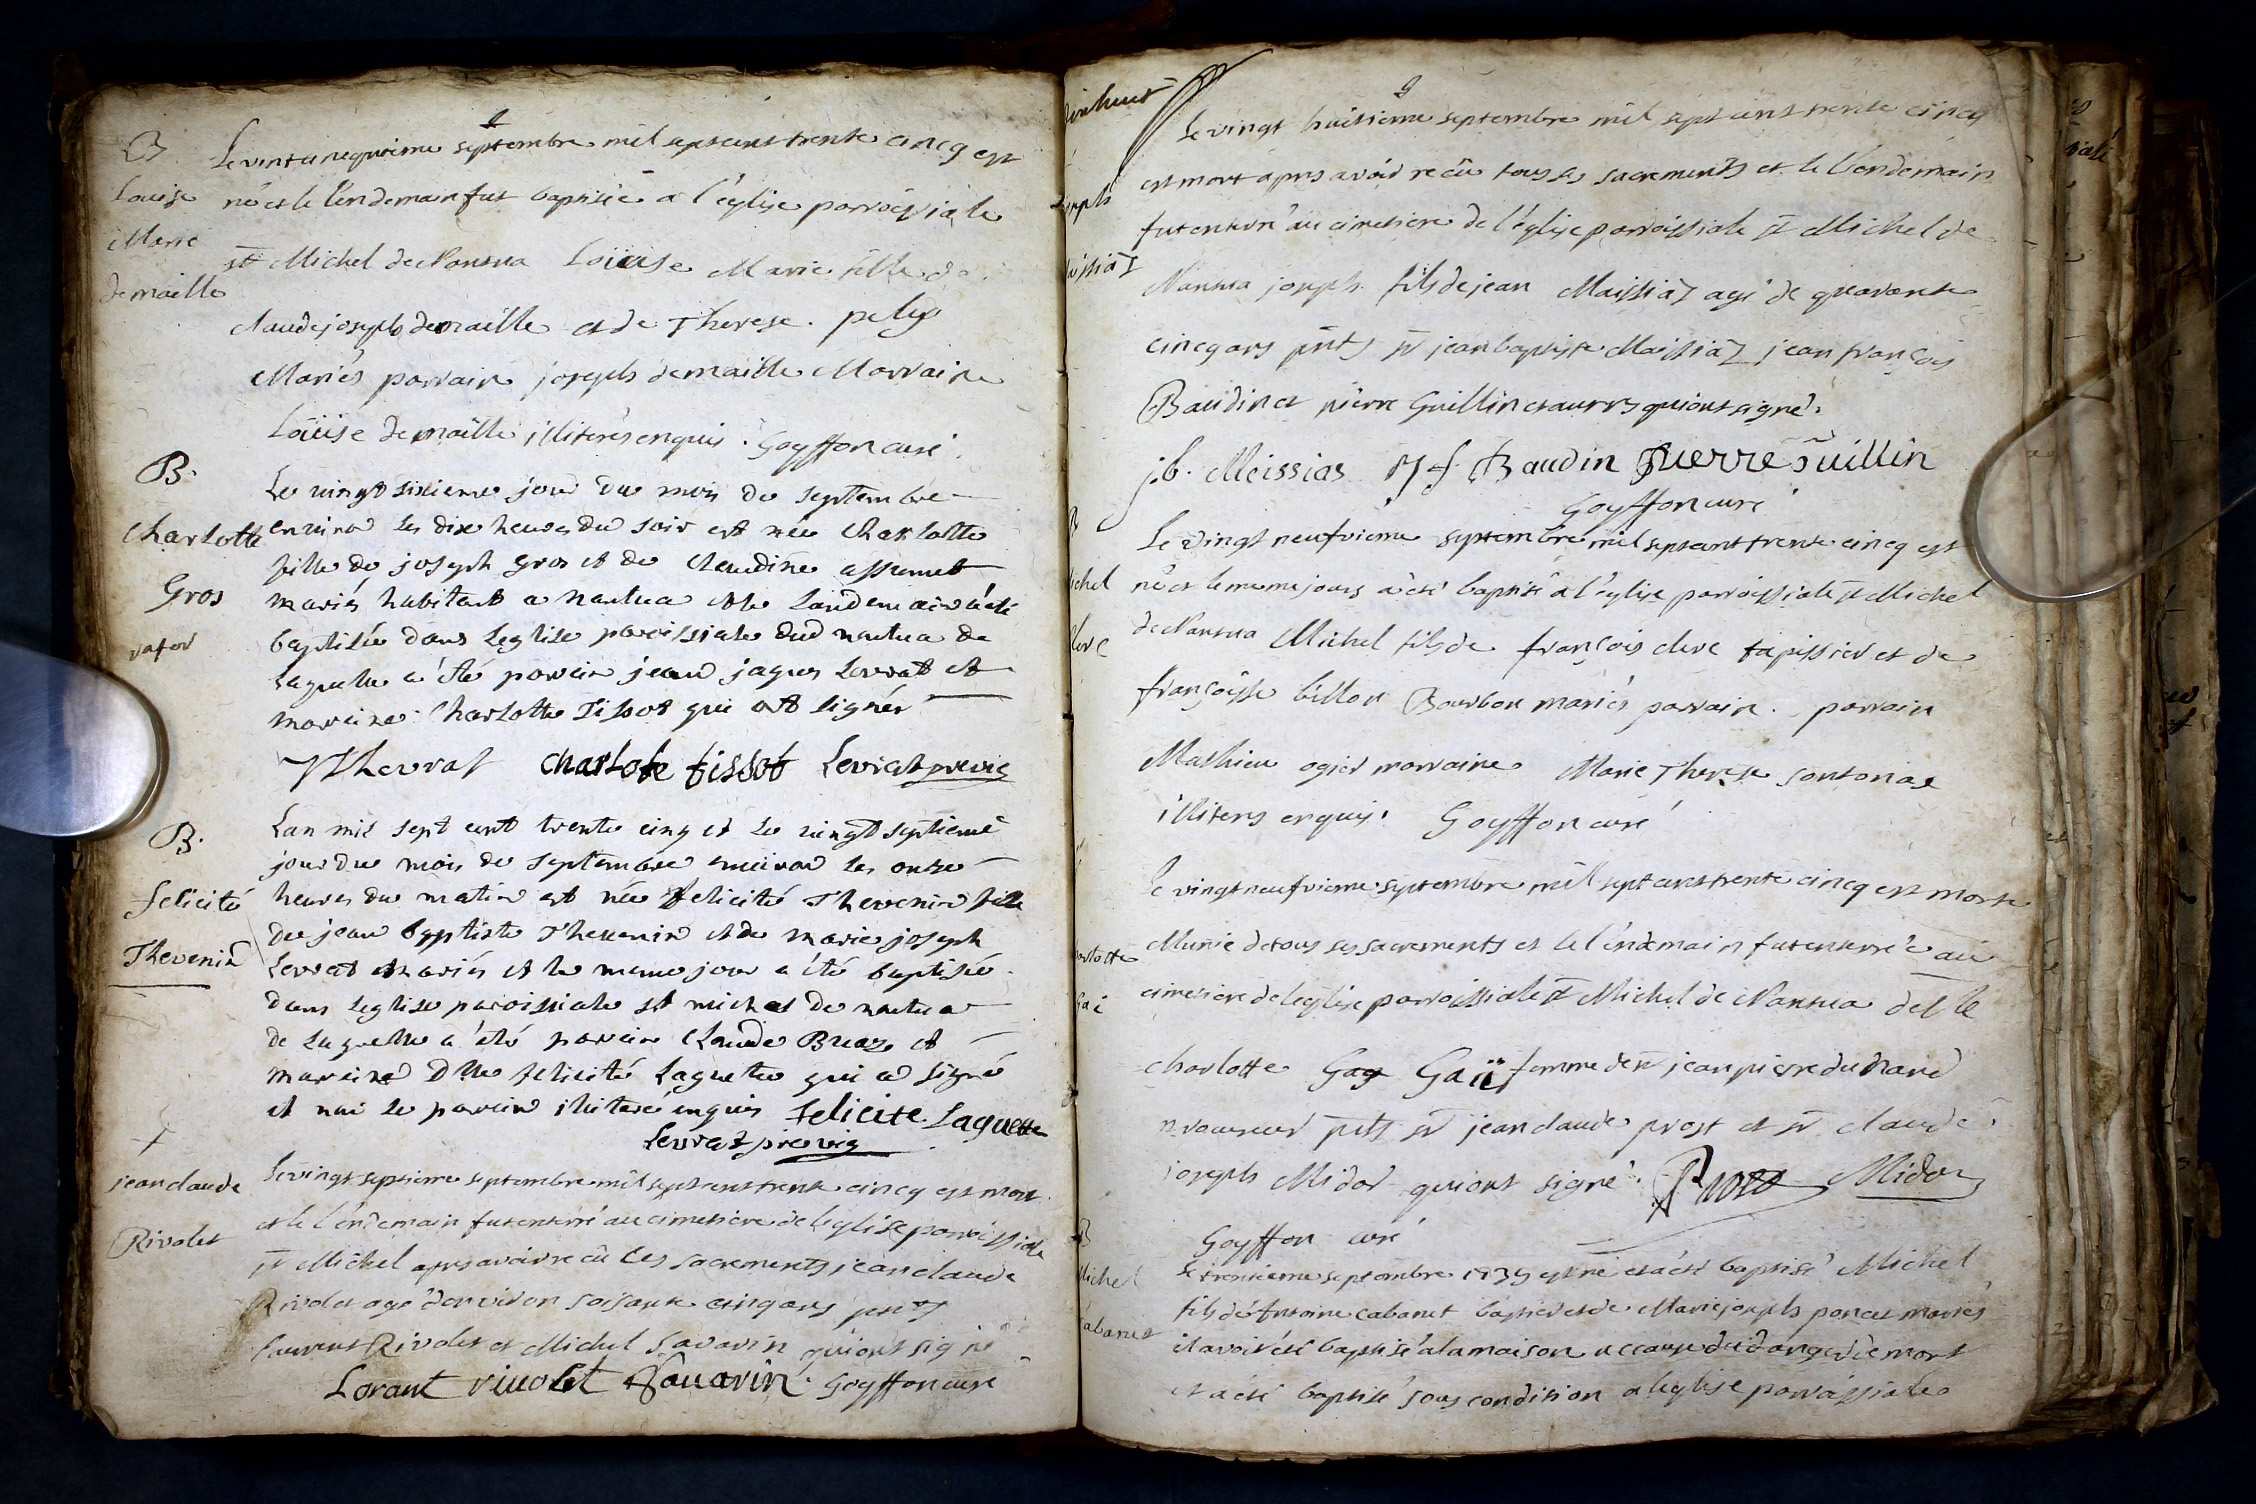 B
Louise
Marie
demaille
Le vintcinequieme septembre mil septcent trente cincq est
né et le l'endemain fut baptisée a l'église parroissiale
st Michel de Nantua Loüise Marie fille de
claude joseph demaille et de Therese pely
Mariés parrain joseph demaille Marraine
Loüise demaille illiterés enquis. Goyffon curé.
B.
Charlotte
Gros
Le vingt sixieme jour du mois de septembre
environ les dix heures du soir est née Charlotte
fille de joseph Gros et de Claudine assumet
mariés habitant a nantua et le landemain a été
baptisée dans leglise paroissiale dud nantua de
laquelle a été parain jean jaques Levrat et
maraine Charlotte Tissot qui ont signés
charlote tissot Levrat previc
B.
felicité
Thevenin
Lan mil sept cent trente cinq et le vingt septieme
jour du mois de septembre environ les onze
heures du matin est née felicité Thevenin fille
de jean baptiste Thevenin et de marie joseph
Levrat mariés et le meme jour a été baptisée
dans leglise paroissiale st michel de nantua
de laquelle a été parain Claude Breaz et
maraine Dlle felicité Laguette qui a signé
et non le parain illiteré enquis felicite Laguette
Levrat previc
+
jean claude
Rivolet
Le vingt septieme septembre mil sept cent trente cincq est mort
et le l'endemain fut enterré au cimetiere de leglise parroissiale
st Michel apres avoir recû les sacrements jean claude
Rivolet agé d'environ soisante cinq ans pnts
laurent Rivolet et Michel Savarin qui ont signé
Lorant rivolet Savarin. Goyffon curé
joseph
Maissiaz
Le vingt huitieme septembre mil sept cent trente cincq
est mort apres avoir recû tous ses sacrements et le l'endemain
fut enterré au cimetiere de l'église parroissiale st Michel de
Nantua joseph fils de jean Maissiaz agé de quarante
cincq ans pnts sr jean baptiste Maissiaz jean françois
Baudin et pierre Guillin et autres qui ont signé.
j.b. Meissias J f Baudin pierre Guillin
Goyffon curé
B
Michel
clerc
Le vingt neufvieme septembre mil septcent trente cincq est
né et le meme jours a été baptisé a l'église parroissiale st Michel
de Nantua Michel fils de françois clerc tapissier et de
françoisse billon Bourbon mariés parrain. parrain
Mathieu ogier marraine Marie Therese Santonax
illiterés enquis. Goyffon curé
charlotte
Gai
Le vingt neufvieme septembre mil sept cent trente cincq est morte
Munie de tous ses sacrements et le l'endemain fut enterrée au
cimetiere de leglise parroissiale st Michel de Nantua delle
charlotte Gay Gaï femme de sr jean pierre dunand
procureur pnts sr jean claude prost et sr claude
joseph Midor qui ont signé. Prost Midor
Goyffon curé
B
Michel
Cabanet
Le trentieme septembre 1735 est né et a été baptisé Michel
fils de Antoine cabanet et de Marie joseph poncet mariés
il avoit été baptisé a la maison a cause du danger de mort
et a été baptisé sous condition a leglise parroissiale